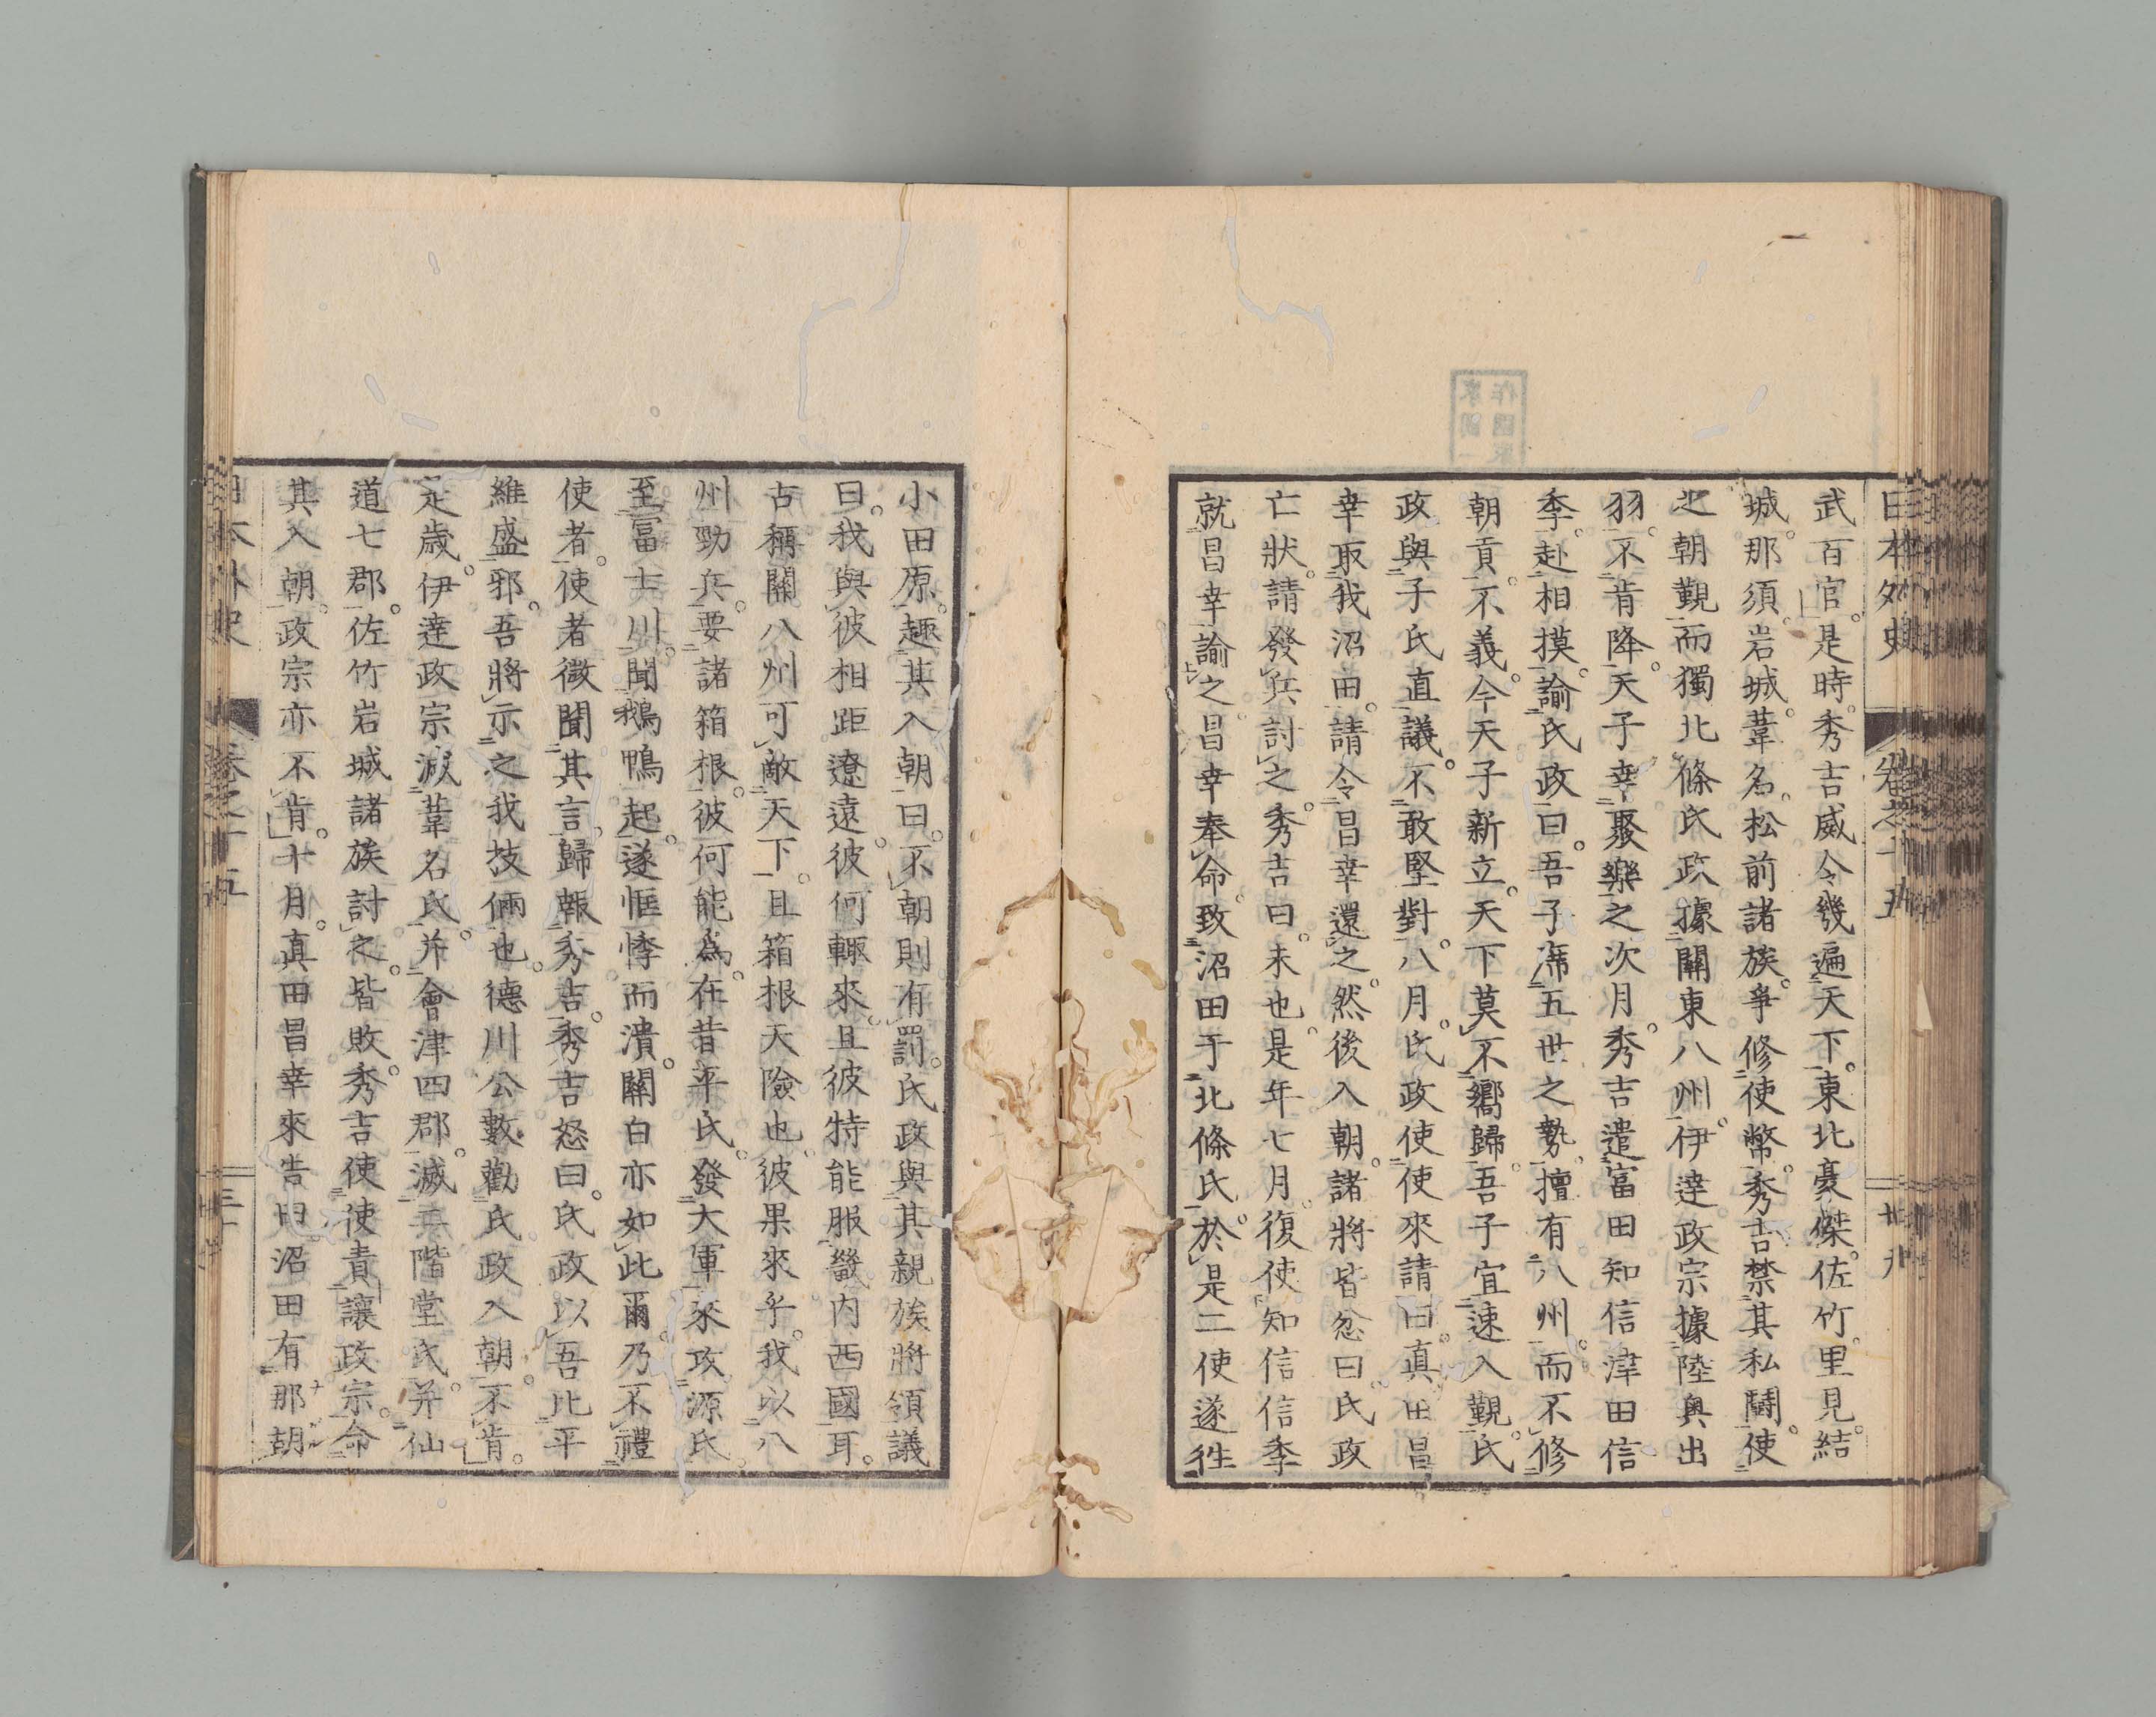 日本外史 卷之十五 廿九
武百官。是時。秀吉威令幾遍天下。東北豪傑。佐竹。里見。結
城。那須。岩城。葦名。松前諸族。爭修使幣。秀吉禁其私鬪。使
之朝覲。而獨北條氏政。據關東八州。伊達政宗據陸奥出
羽。不肯降。天子幸聚樂之次月。秀吉遣富田知信津田信
季。赴相摸。諭氏政曰。吾子席五世之勢。擅有八州。而不修
朝貢。不義。今天子新立。天下莫不嚮歸。吾子宜速入覲。氏
政與子氏直議。不敢堅對。八月。氏政使使來請曰。真田昌
幸取我沼田。請令昌幸還之。然後入朝。諸將皆忿曰。氏政
亡狀。請發兵討之。秀吉曰。未也。是年七月。復使知信信季
就昌幸諭之。昌幸奉命。致沼田于北條氏。於是二使遂徃
小田原。趣其入朝。曰。不朝則有罰。氏政與其親族將領議
曰。我與彼相距遼遠。彼何輙來。且彼特能服畿内西國耳。
古稱關八州可敵天下。且箱根天險也。彼果來乎。我以八
州勁兵。要諸箱根。彼何能為。在昔平氏。發大軍來攻源氏。
至富士川。聞鵝鴨起。遂恇悸而潰。關白亦如此爾。乃不禮
使者。使者微聞其言。歸報秀吉。秀吉怒曰。氏政以吾比平
維盛邪。吾將示之我技倆也。德川公數勸氏政入朝。不肯。
是歲。伊達政宗滅葦名氏。并會津四郡。滅二階堂氏。并仙
道七郡。佐竹岩城諸族討之。皆敗。秀吉使使責讓政宗。命
其入朝。政宗亦不肯。十月。真田昌幸來告曰。沼田有那胡
日本外史 卷之十五 三十